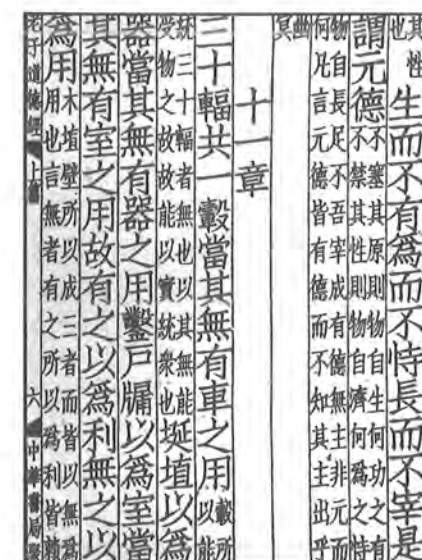 其性
也
生而不有爲而不恃長而不宰是
謂元德
不塞其原則物自生何功之有
不禁其性則物自濟何爲之恃
物自長足不吾宰成有德無主非元而
何凡言元德皆有德而不知其主出乎
幽
冥
十一章
三十輻共一轂當其無有車之用
轂所
以能
統三十輻者無也以其無能
受物之故故能以實統衆也
埏埴以爲
器當其無有器之用鑿戶牖以爲室當
其無有室之用故有之以爲利無之以
爲用
木埴壁所以成三者而皆以無爲
用也言無者有之所以爲利皆賴
老子道德經 上篇 六 中華書局聚